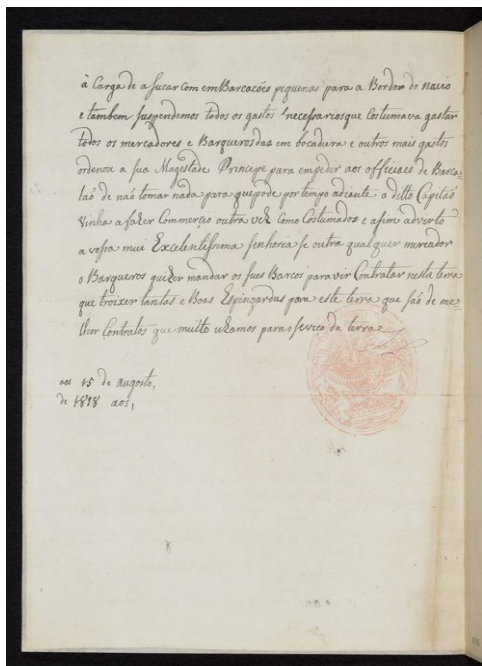 à Carga de asucar com embarcações pequenas para a Bordo do navio
e tambem suspendemos todos os gastos necessarios que Costumava gastar
todos os mercadores e Barqueros das em bocadura e outros mais gastos
ordenou a sua Magestade Principe para empedir aos officiaes de Barca-
laõ de não tomar nada para que pode por tempo adeante o ditto Capitaõ
Vinha a fazer Commerço outra vez como Costumados e asim adverto
a vossa mui Excelentissima senhoria se outra qualquer mercador
o Barqueros quizer mandar os sues Barcos para vir Contratar nesta terra
que troixer tantas e Boas Espingardas para este terra que saõ de me-
lhor Contratos que muito uzamos para o seviço da terra
aos 15 de augosto,
de 1818 aos,